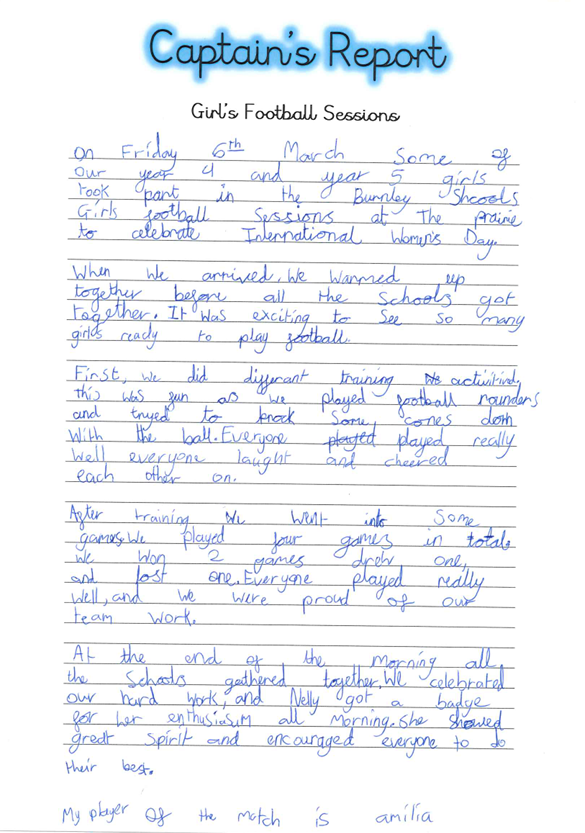 Captain's Report
Girl's Football Sessions
On Friday 6th March Some of
our year 4 and year 5 girls
took part in the Burnley Shcools
Girls football Sessions at The prairie
to celebrate International Women's Day.
When we arrived, We Warmed up
together before all the Schools got
together. It was exciting to See so many
girls ready to play football.
First, we did differant training activitivd,
this was fun as we played football rounders
and tryed to knock Some cones doth
With the ball. Everyone played played really
Well everyone laught and cheered
each other on.
After training We Went into Some
games. We played four games in total.
We Won 2 games drew one,
and lost one. Everyone played really
Well, and we were proud of our
team work.
At the end of the Morning all
the Schools gathered together. We celebrated
our hard work, and Nelly got a badge
for her enthusiasim all Morning. She showed
great Spirit and encouraged everyone to do
their best.
My player of the match is amilia